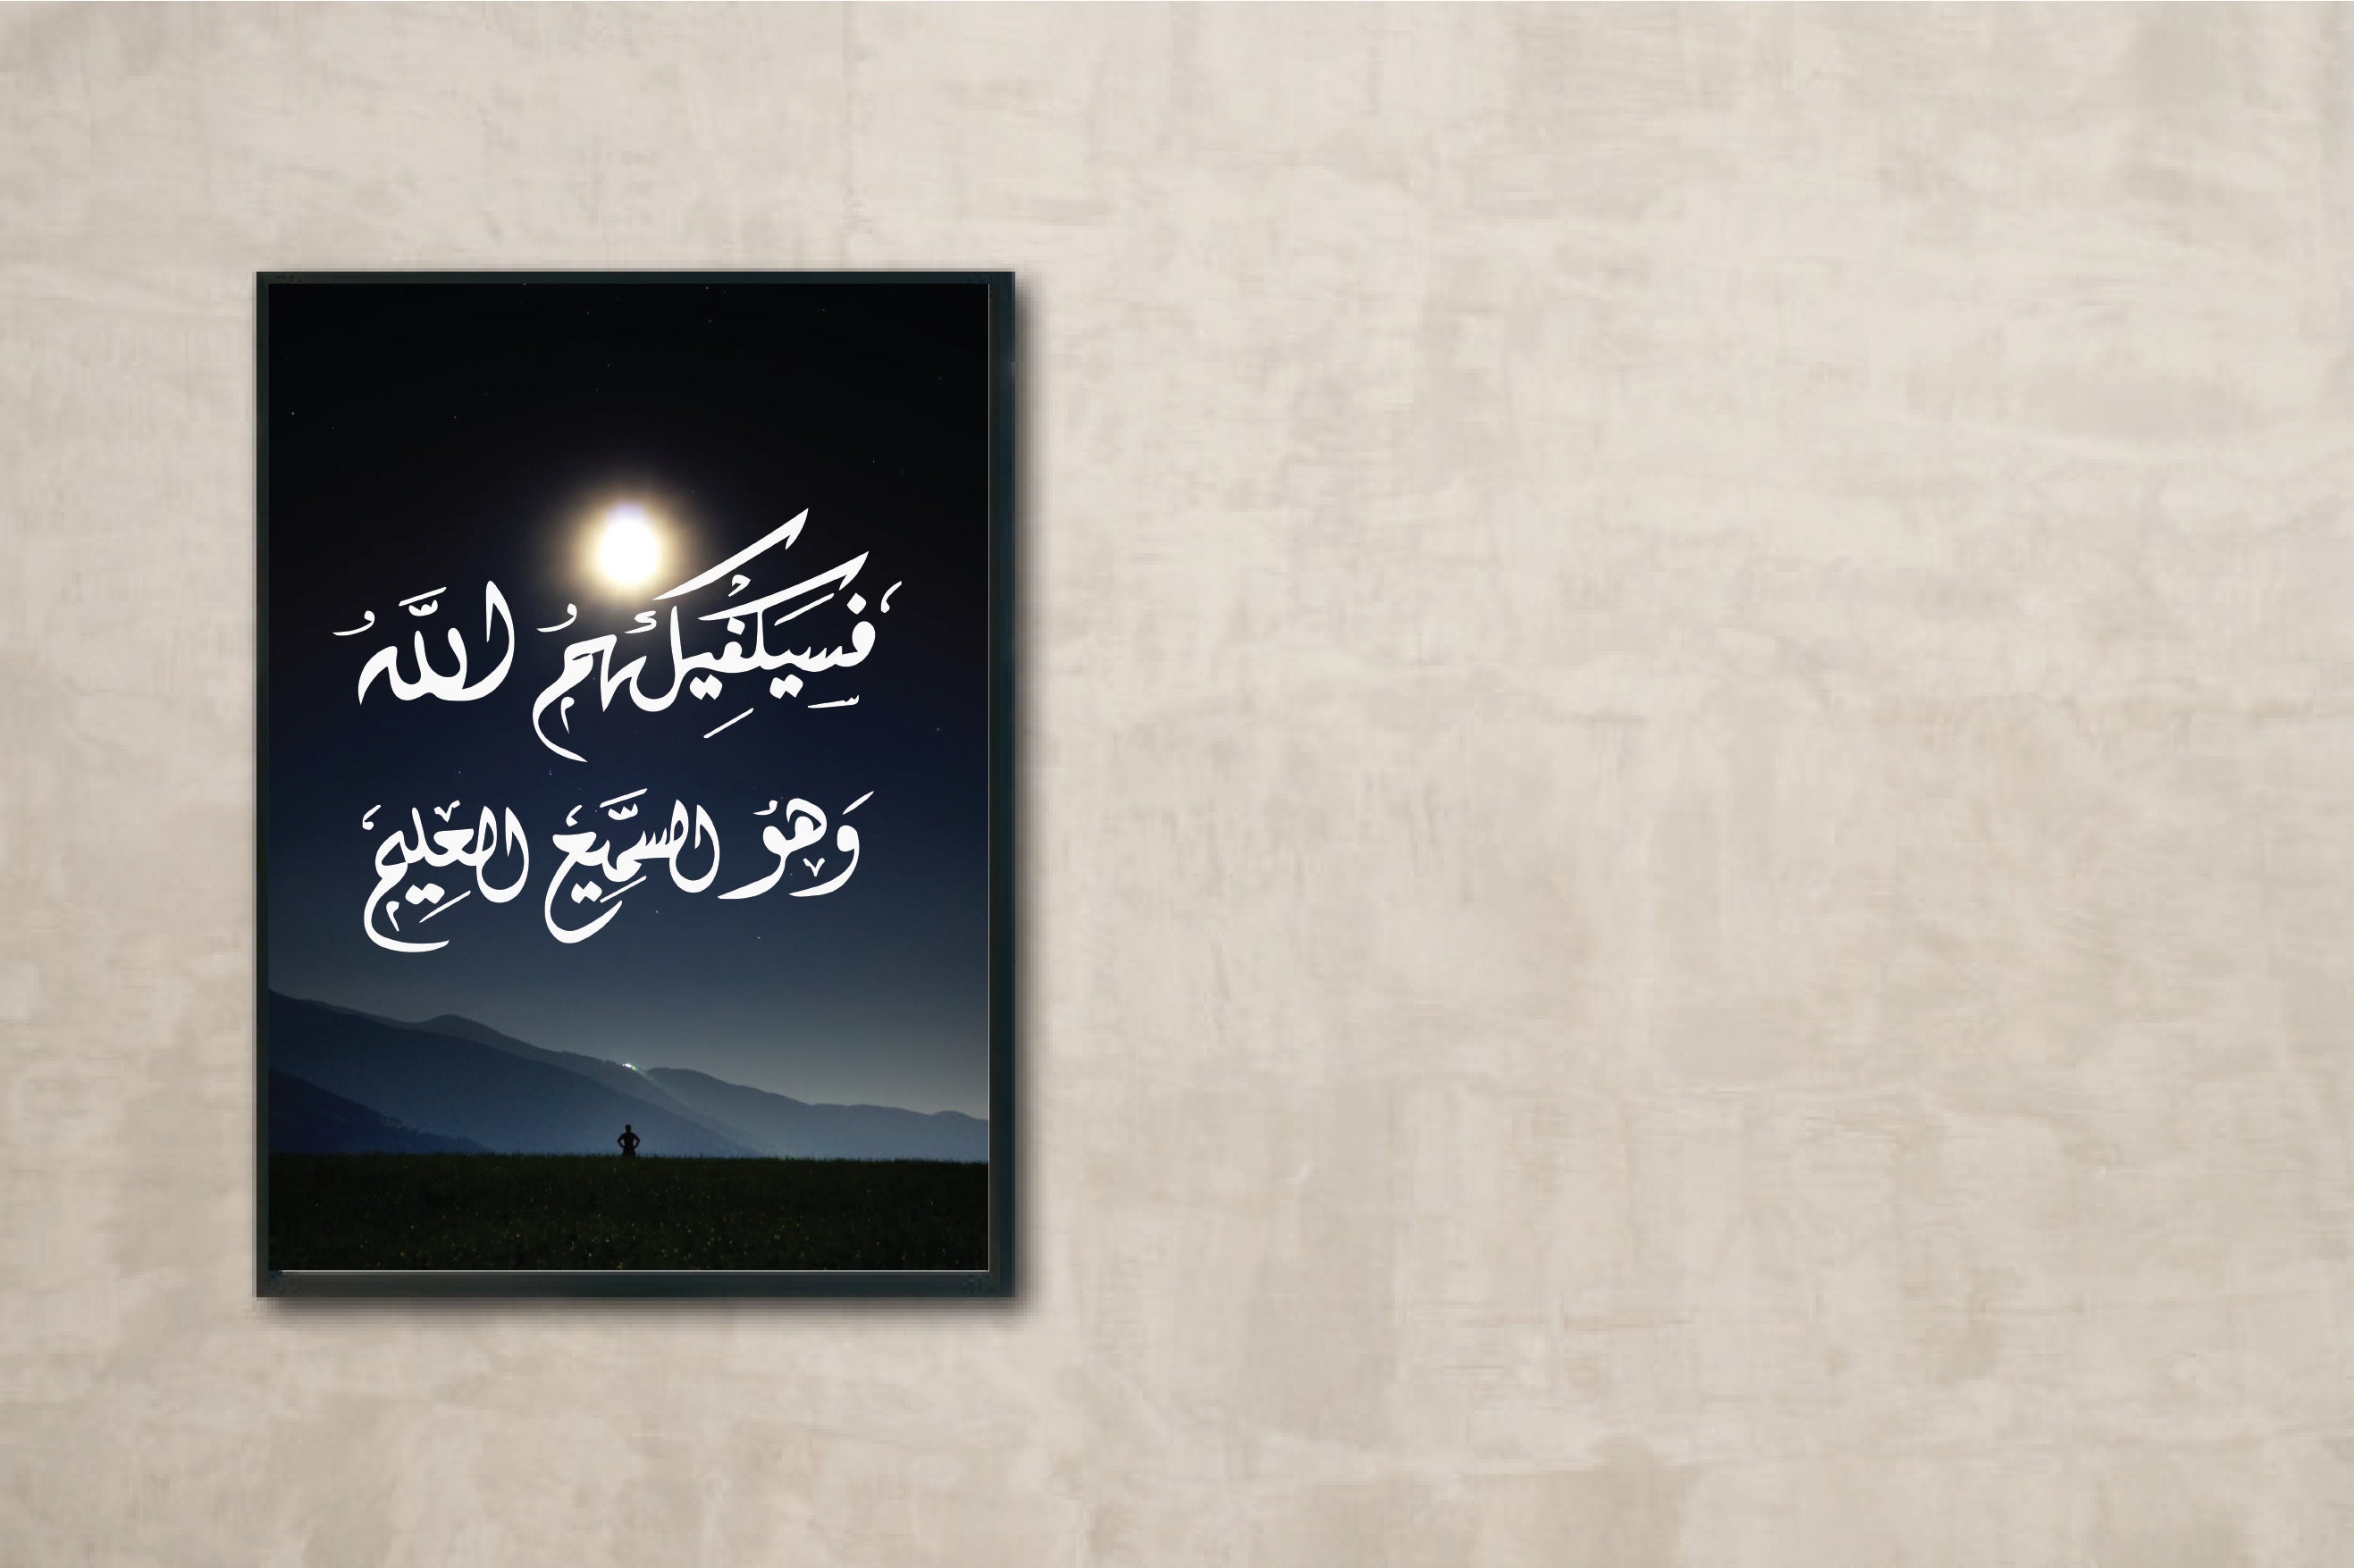 فَسَيَكْفِيكَهُمُ اللَّهُ
وَهُوَ السَّمِيعُ العَلِيمُ